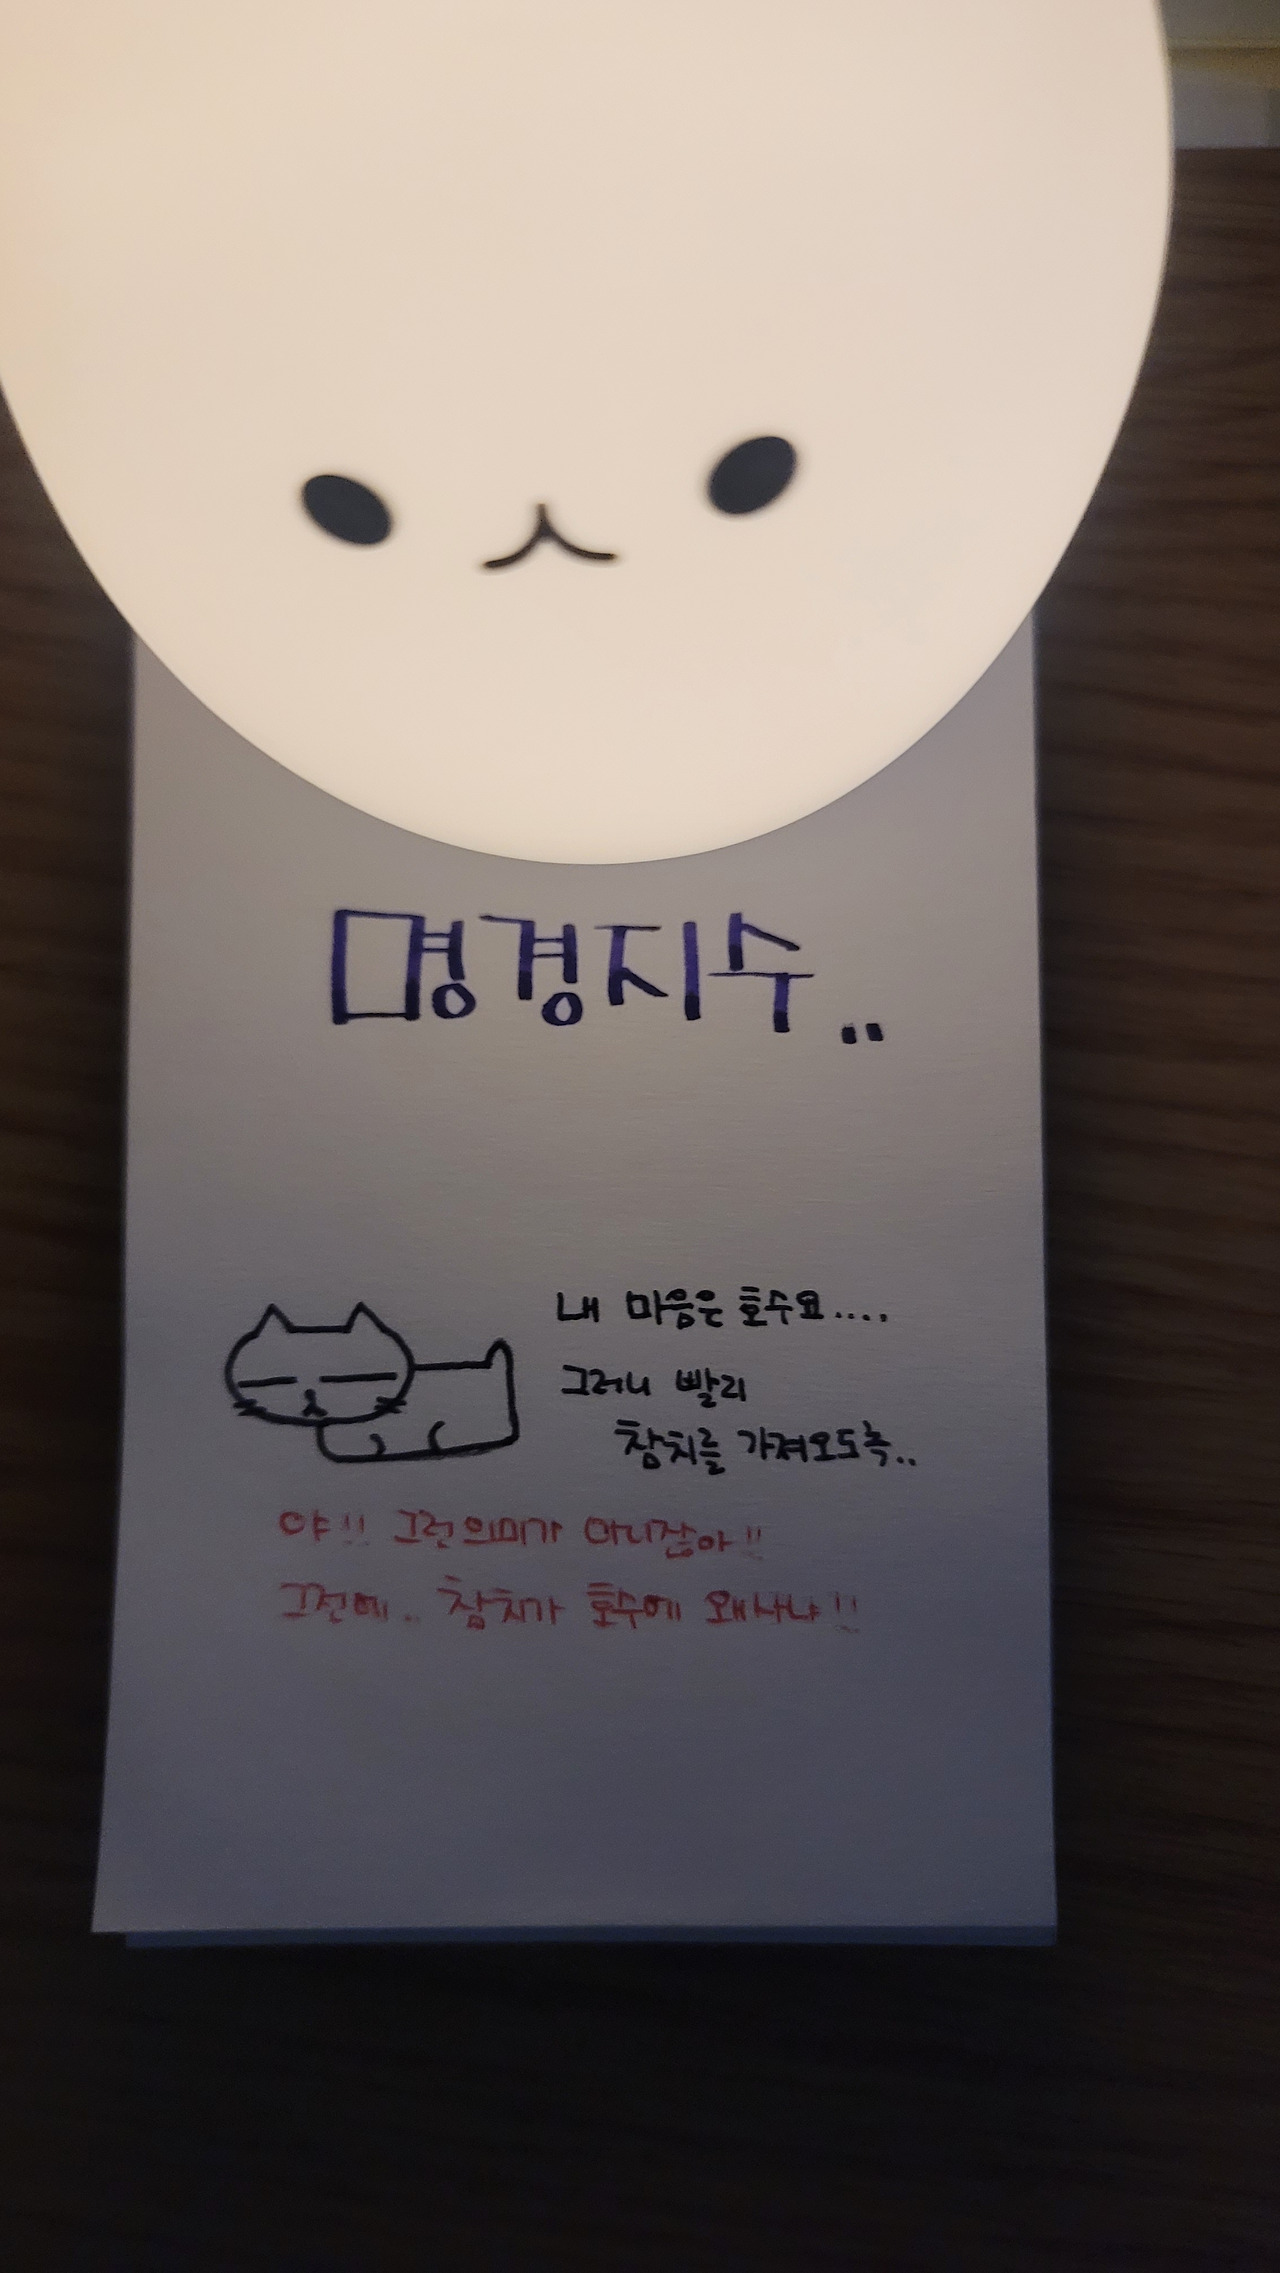 명경지수..
내 마음은 호수요....
그러니 빨리
참치를 가져오도록..
야!! 그런의미가 아니잖아!!
그전에.. 참치가 호수에 왜사냐!!